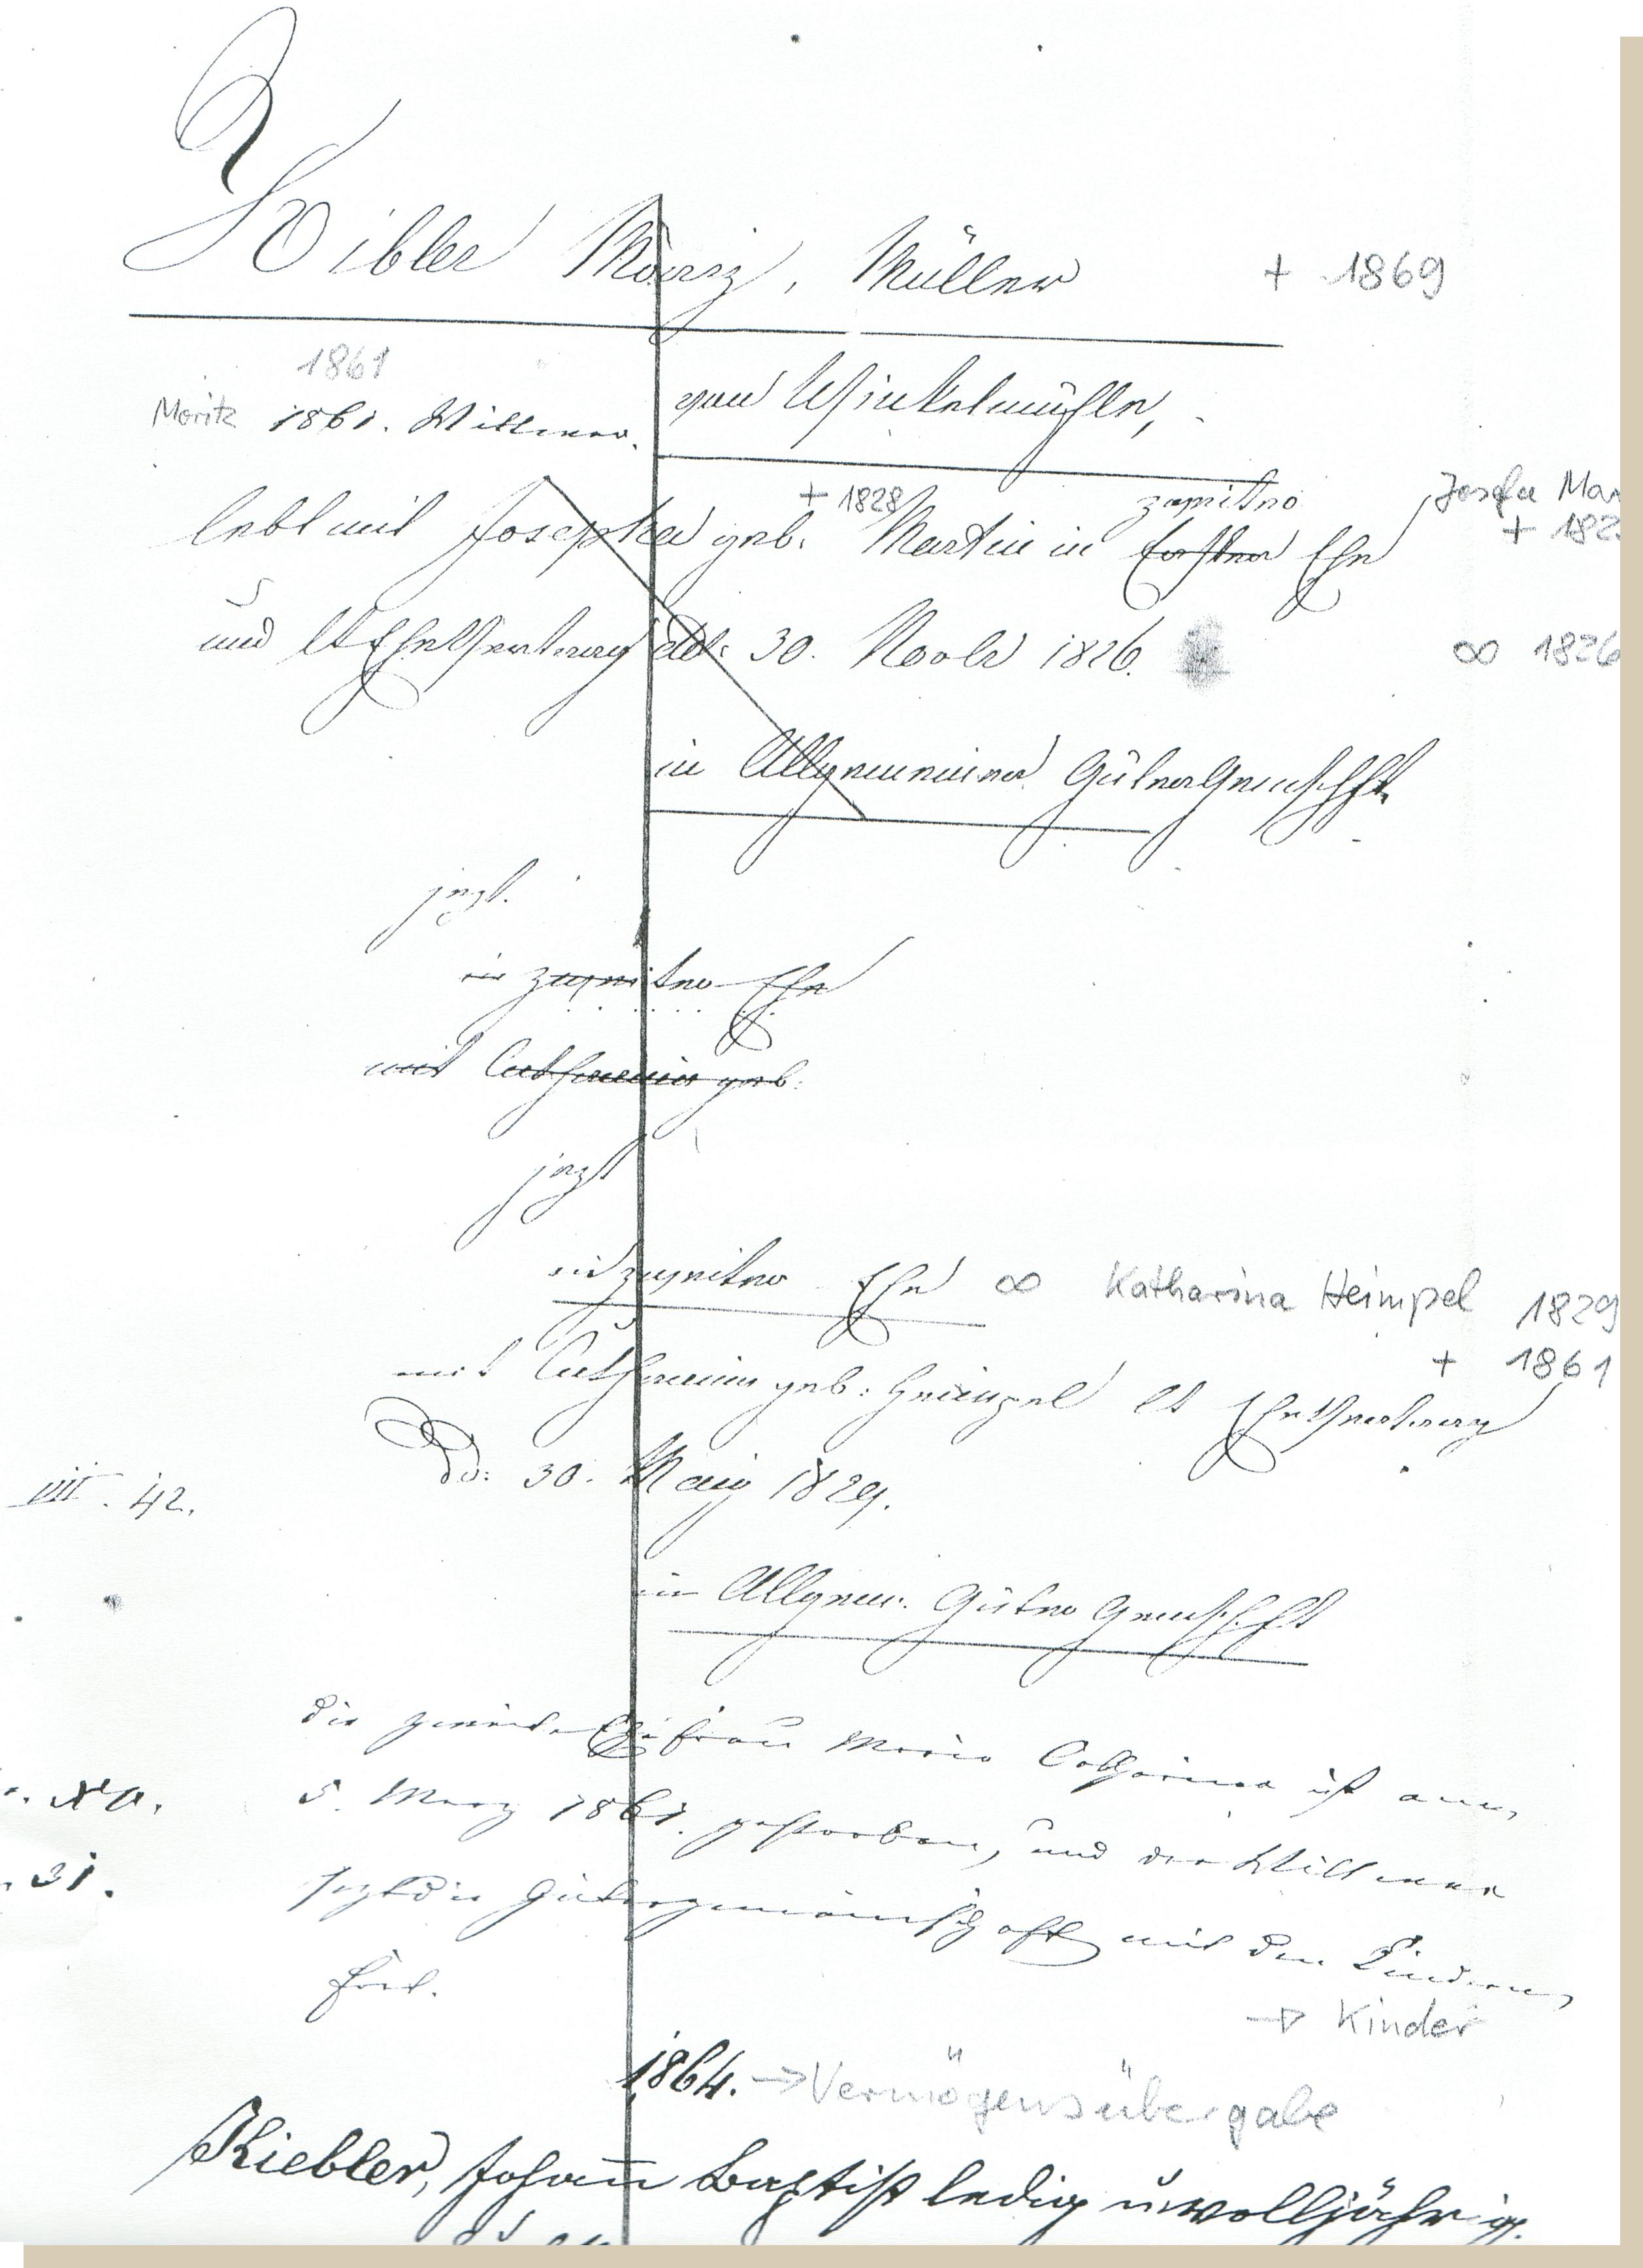 Kibler Moriz, Müller + 1869
1861
von Winkelmühle,
Moritz 1861. Wittwer.
+ 1828 zweiter Josefa Mar
lebt mit Josepha geb. Martin in Erster Ehe + 182
und lt Ehe Vertrag dd: 30. Novbr 1826. ∞ 1826
in Allgemeiner Güter Gemschft
jezt.
in zweiter Ehe
mit Catharina geb:
jezt
in zweiter Ehe ∞ Katharina Heimpel 1829
+ 1861
mit Catharina geb: Heimpel lt Ehe Vertrag
dd: 30. May 1829.
VII. 42.
in Allgem. Güter Gemschft
die zweite Ehefrau Maria Catharina ist am
5. März 1861. gestorben, und der Wittwer
31.
sezt die Gütergemeinschaft mit den Kindern
fort.
→ Kinder
1864. → Vermögensübergabe
Kiebler, Johann Baptist ledig u. volljährig.